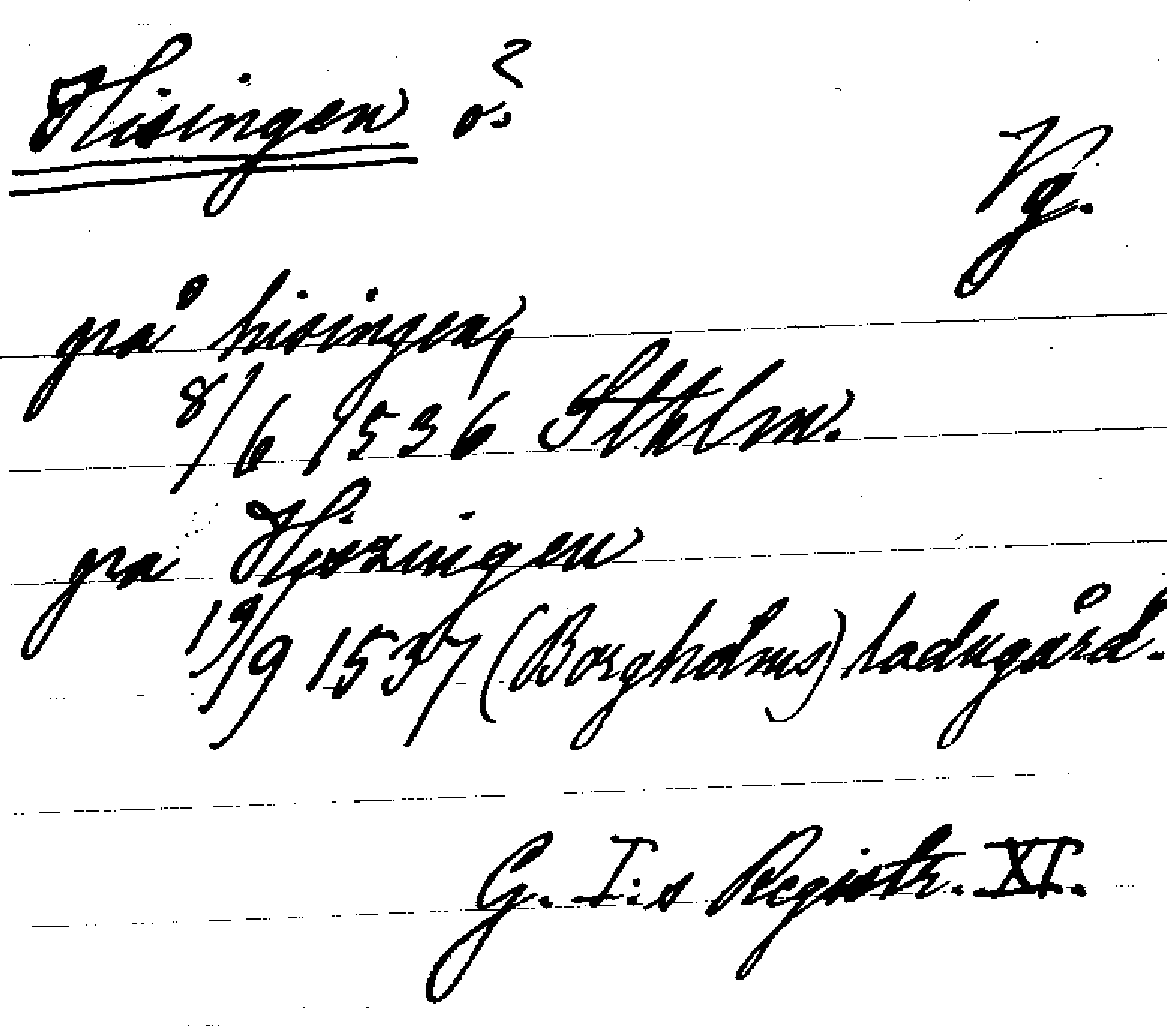 Hisingen ö?
Vg.
på hisingen,
8/6 1536 Sthlm.
pa Hijszingen
19/9 1537 (Borgholms) ladugård.
G. I:s Registr. XI.